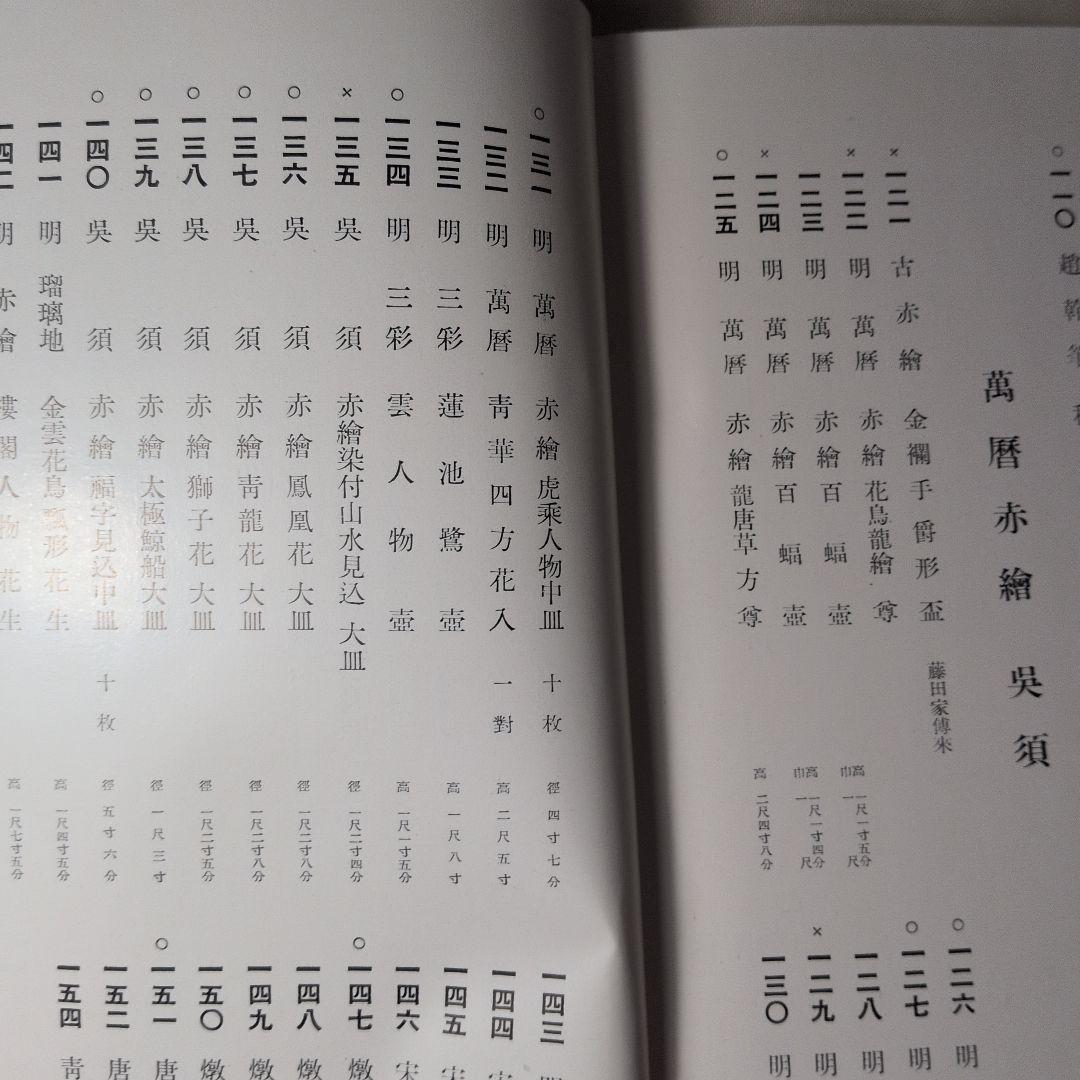 ○ 一二〇 趙
萬曆赤繪 吳須
× 一二一 古赤繪 金襴手爵形盃 藤田家傳來
× 一二二 明 萬曆 赤繪 花鳥龍繪尊 高一尺一寸五分 巾一尺
一二三 明 萬曆 赤繪 百蝠壺 高一尺一寸四分 巾一尺
× 一二四 明 萬曆 赤繪 百蝠壺
○ 一二五 明 萬曆 赤繪 龍唐草方尊 高二尺四寸八分
○ 一二六 明
○ 一二七 明
一二八 明
× 一二九 明
一三〇 明
○ 一三一 明 萬曆 赤繪 虎乘人物中皿 十枚 徑四寸七分
一三二 明 萬曆 青華四方花入 一對 高二尺五寸
一三三 明 三彩 蓮池鷺壺 高一尺八寸
○ 一三四 明 三彩 雲人物壺 高一尺一寸五分
× 一三五 吳須 赤繪染付山水見込大皿 徑一尺二寸四分
○ 一三六 吳須 赤繪 鳳凰花大皿 徑一尺二寸八分
○ 一三七 吳須 赤繪 青龍花大皿 徑一尺二寸八分
○ 一三八 吳須 赤繪 獅子花大皿 徑一尺二寸五分
○ 一三九 吳須 赤繪 太極鯨船大皿 徑一尺三寸
○ 一四〇 吳須 赤繪 福字見込中皿 十枚 徑五寸六分
一四一 明 瑠璃地 金雲花鳥瓢形花生 高一尺四寸五分
一四二 明 赤繪 樓閣人物花生 高一尺七寸五分
一四三 明
一四四 宋
一四五 宋
一四六 宋
○ 一四七 燉
一四八 燉
一四九 燉
一五〇 燉
○ 一五一 唐
一五二 唐
一五四 青